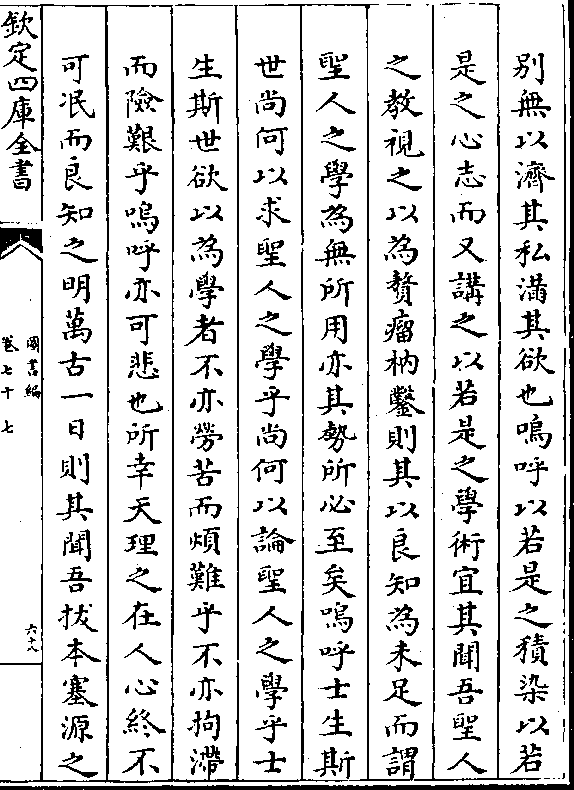 別無以濟其私滿其欲也嗚呼以若是之積染以若
是之心志而又講之以若是之學術宜其聞吾聖人
之教視之以為贅瘤枘鑿則其以良知為未足而謂
聖人之學為無所用亦其勢所必至矣嗚呼士生斯
世尚何以求聖人之學乎尚何以論聖人之學乎士
生斯世欲以為學者不亦勞苦而煩難乎不亦拘滯
而險艱乎嗚呼亦可悲也所幸天理之在人心終不
可泯而良知之明萬古一日則其聞吾拔本塞源之
欽定四庫全書
圖書編
卷七十七
六十八